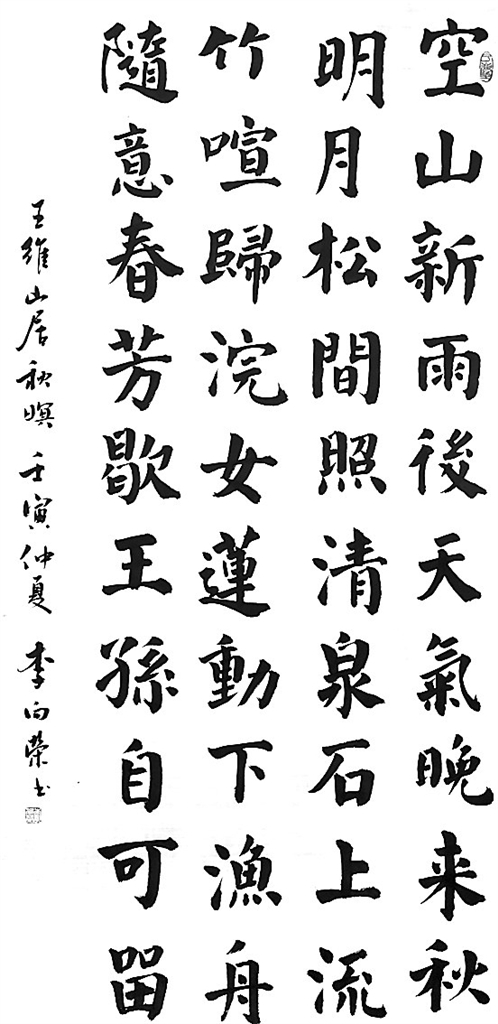 空山新雨後天氣晚来秋
明月松間照清泉石上流
竹喧歸浣女蓮動下漁舟
隨意春芳歇王孫自可留
王維山居秋暝壬寅仲夏李向榮书